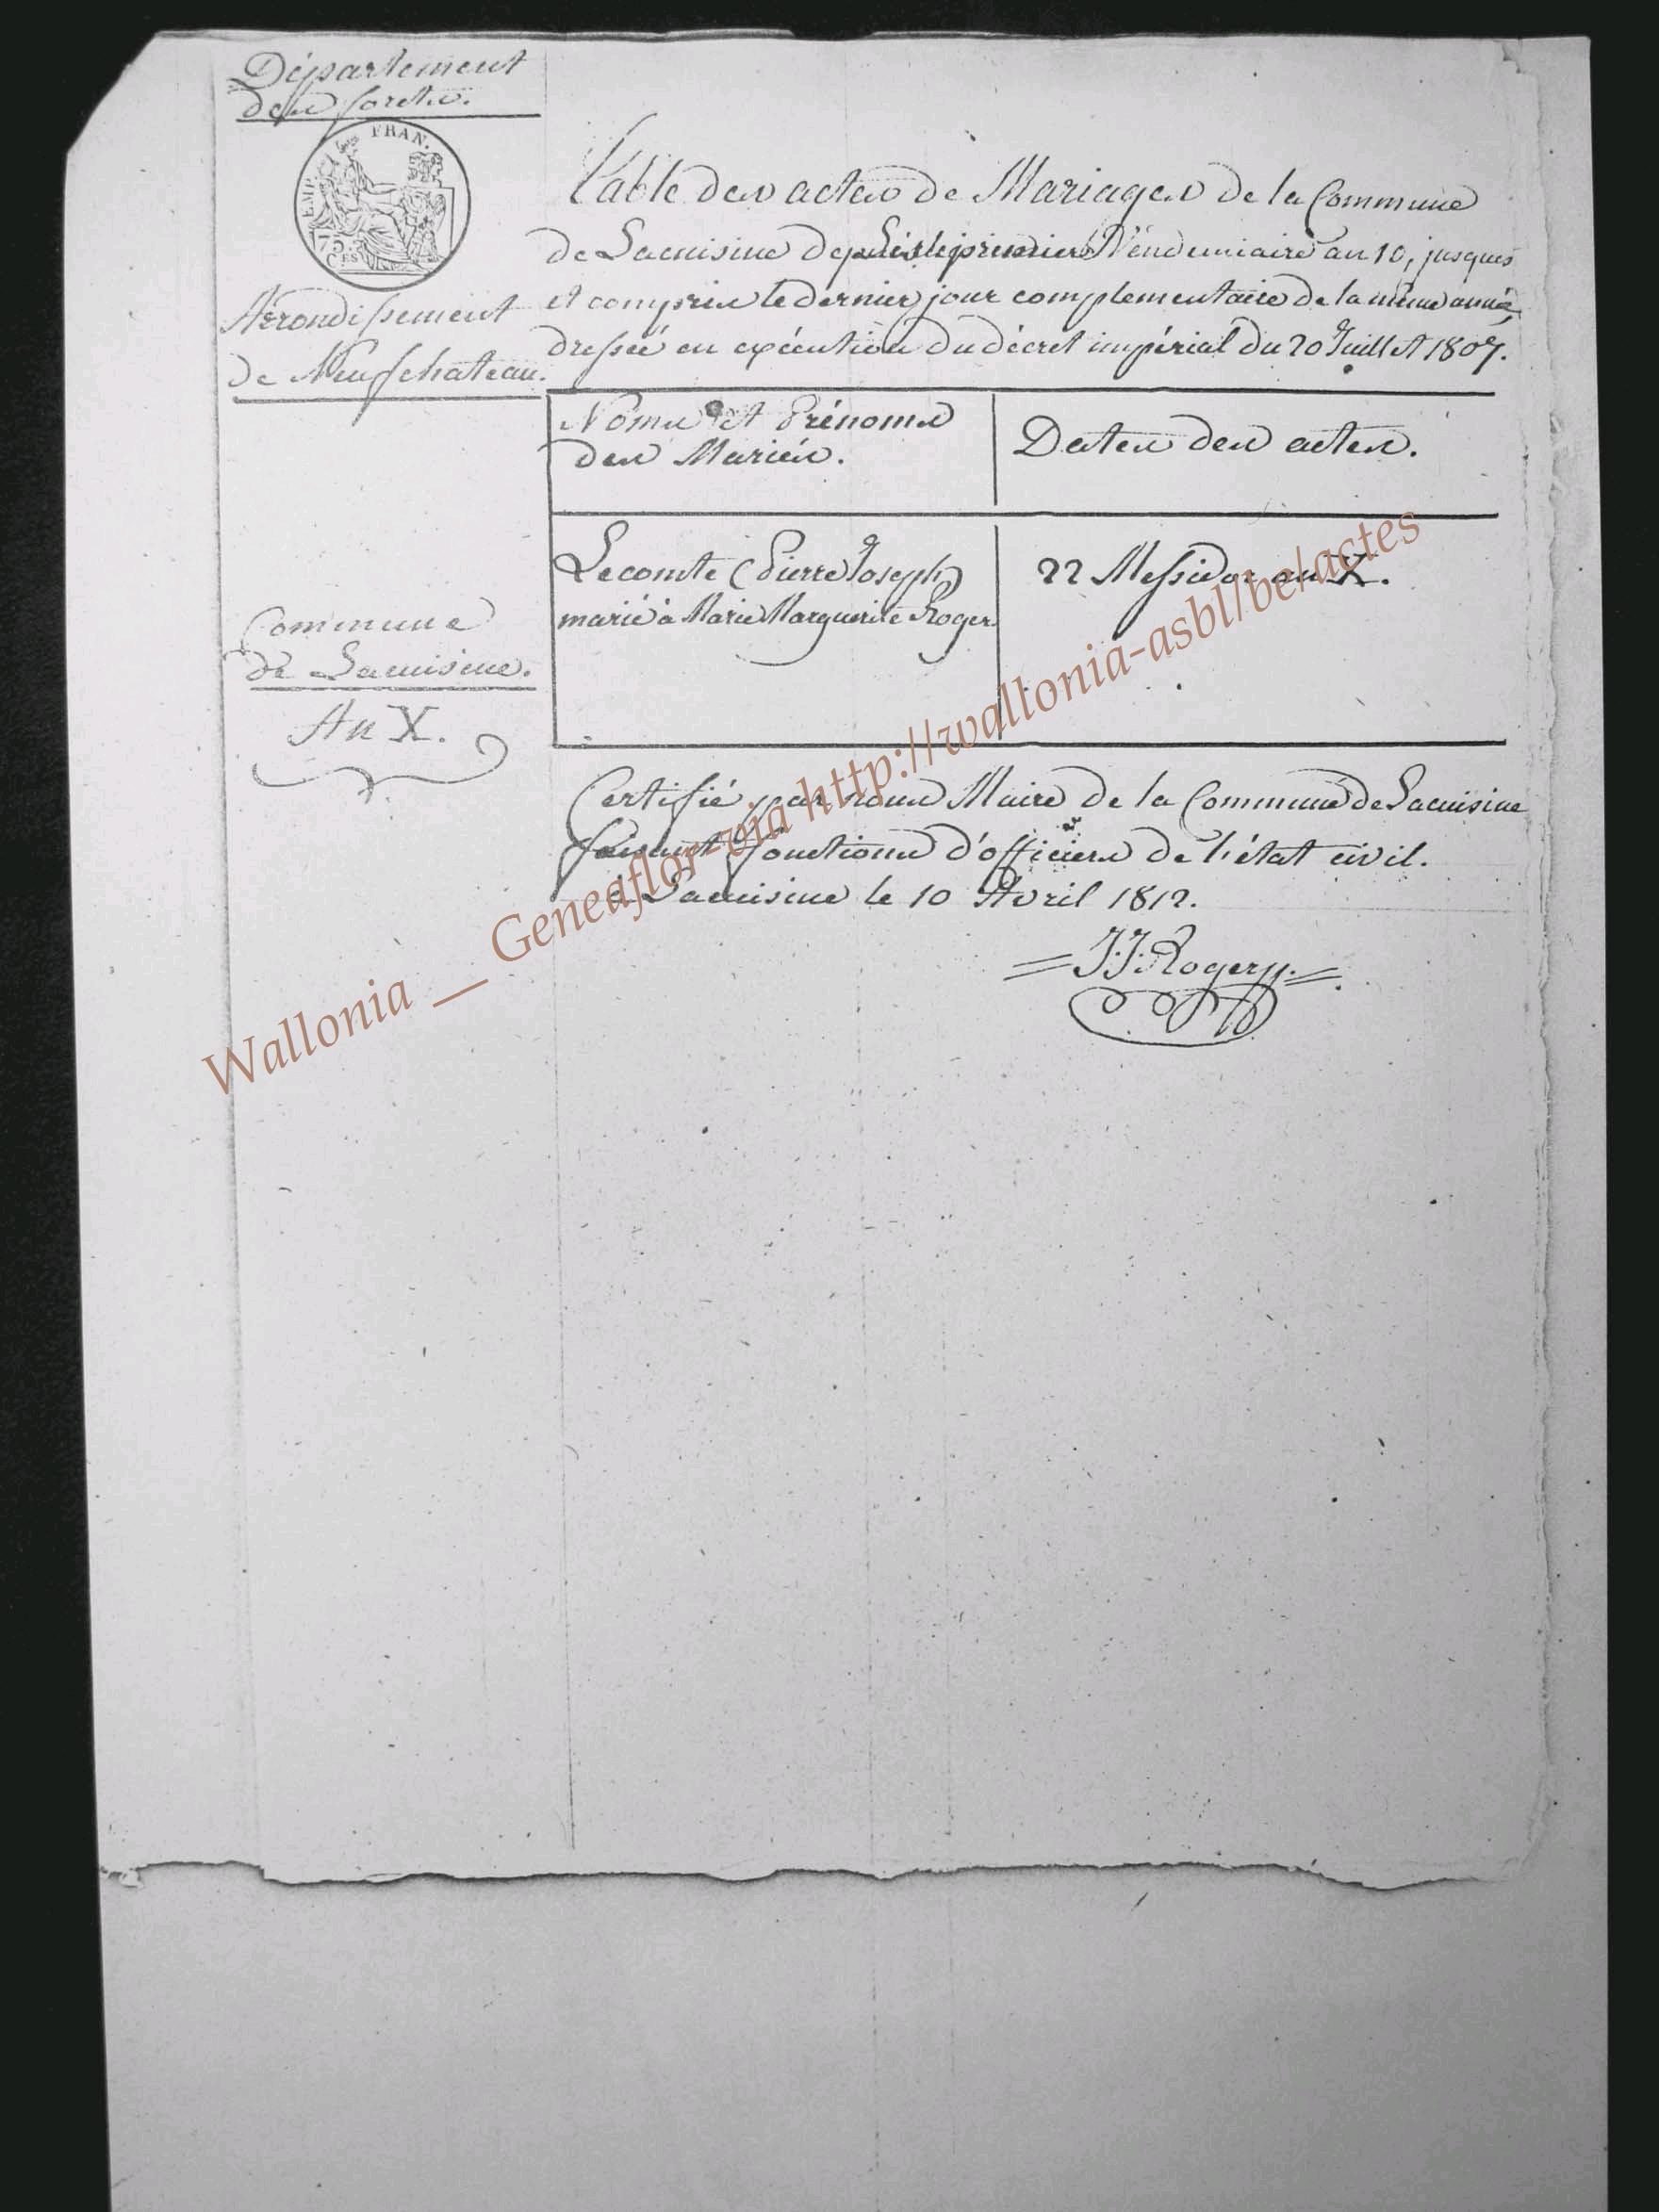 Département
des forêts.
EMP. FRAN.
75.
C.ES
Arrondissement
de Neufchateau.
Commune
de Lacuisine.
An X.
Table des actes de Mariages de la Commune
de Lacuisine depuis le premier Vendemiaire an 10, jusques
et compris le dernier jour complementaire de la même année,
dressée en exécution du décret impérial du 20 Juillet 1807.
Noms et Prénoms
des Mariés.
Dates des actes.
Lecomte (Pierre Joseph)
marié à Marie Marguerite Roger
22 Messidor an X.
Certifié par nous Maire de la Commune de Lacuisine
faisant fonctions d'officiers de l'état civil.
à Lacuisine le 10 Avril 1812.
J.J. Rogery.
Wallonia __ Geneaflor-via http://wallonia-asbl/be/actes